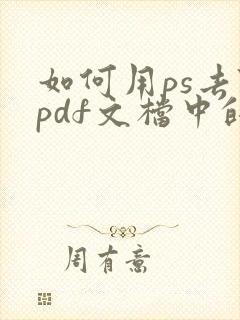 如何用ps去
pdf文檔中的
周有意